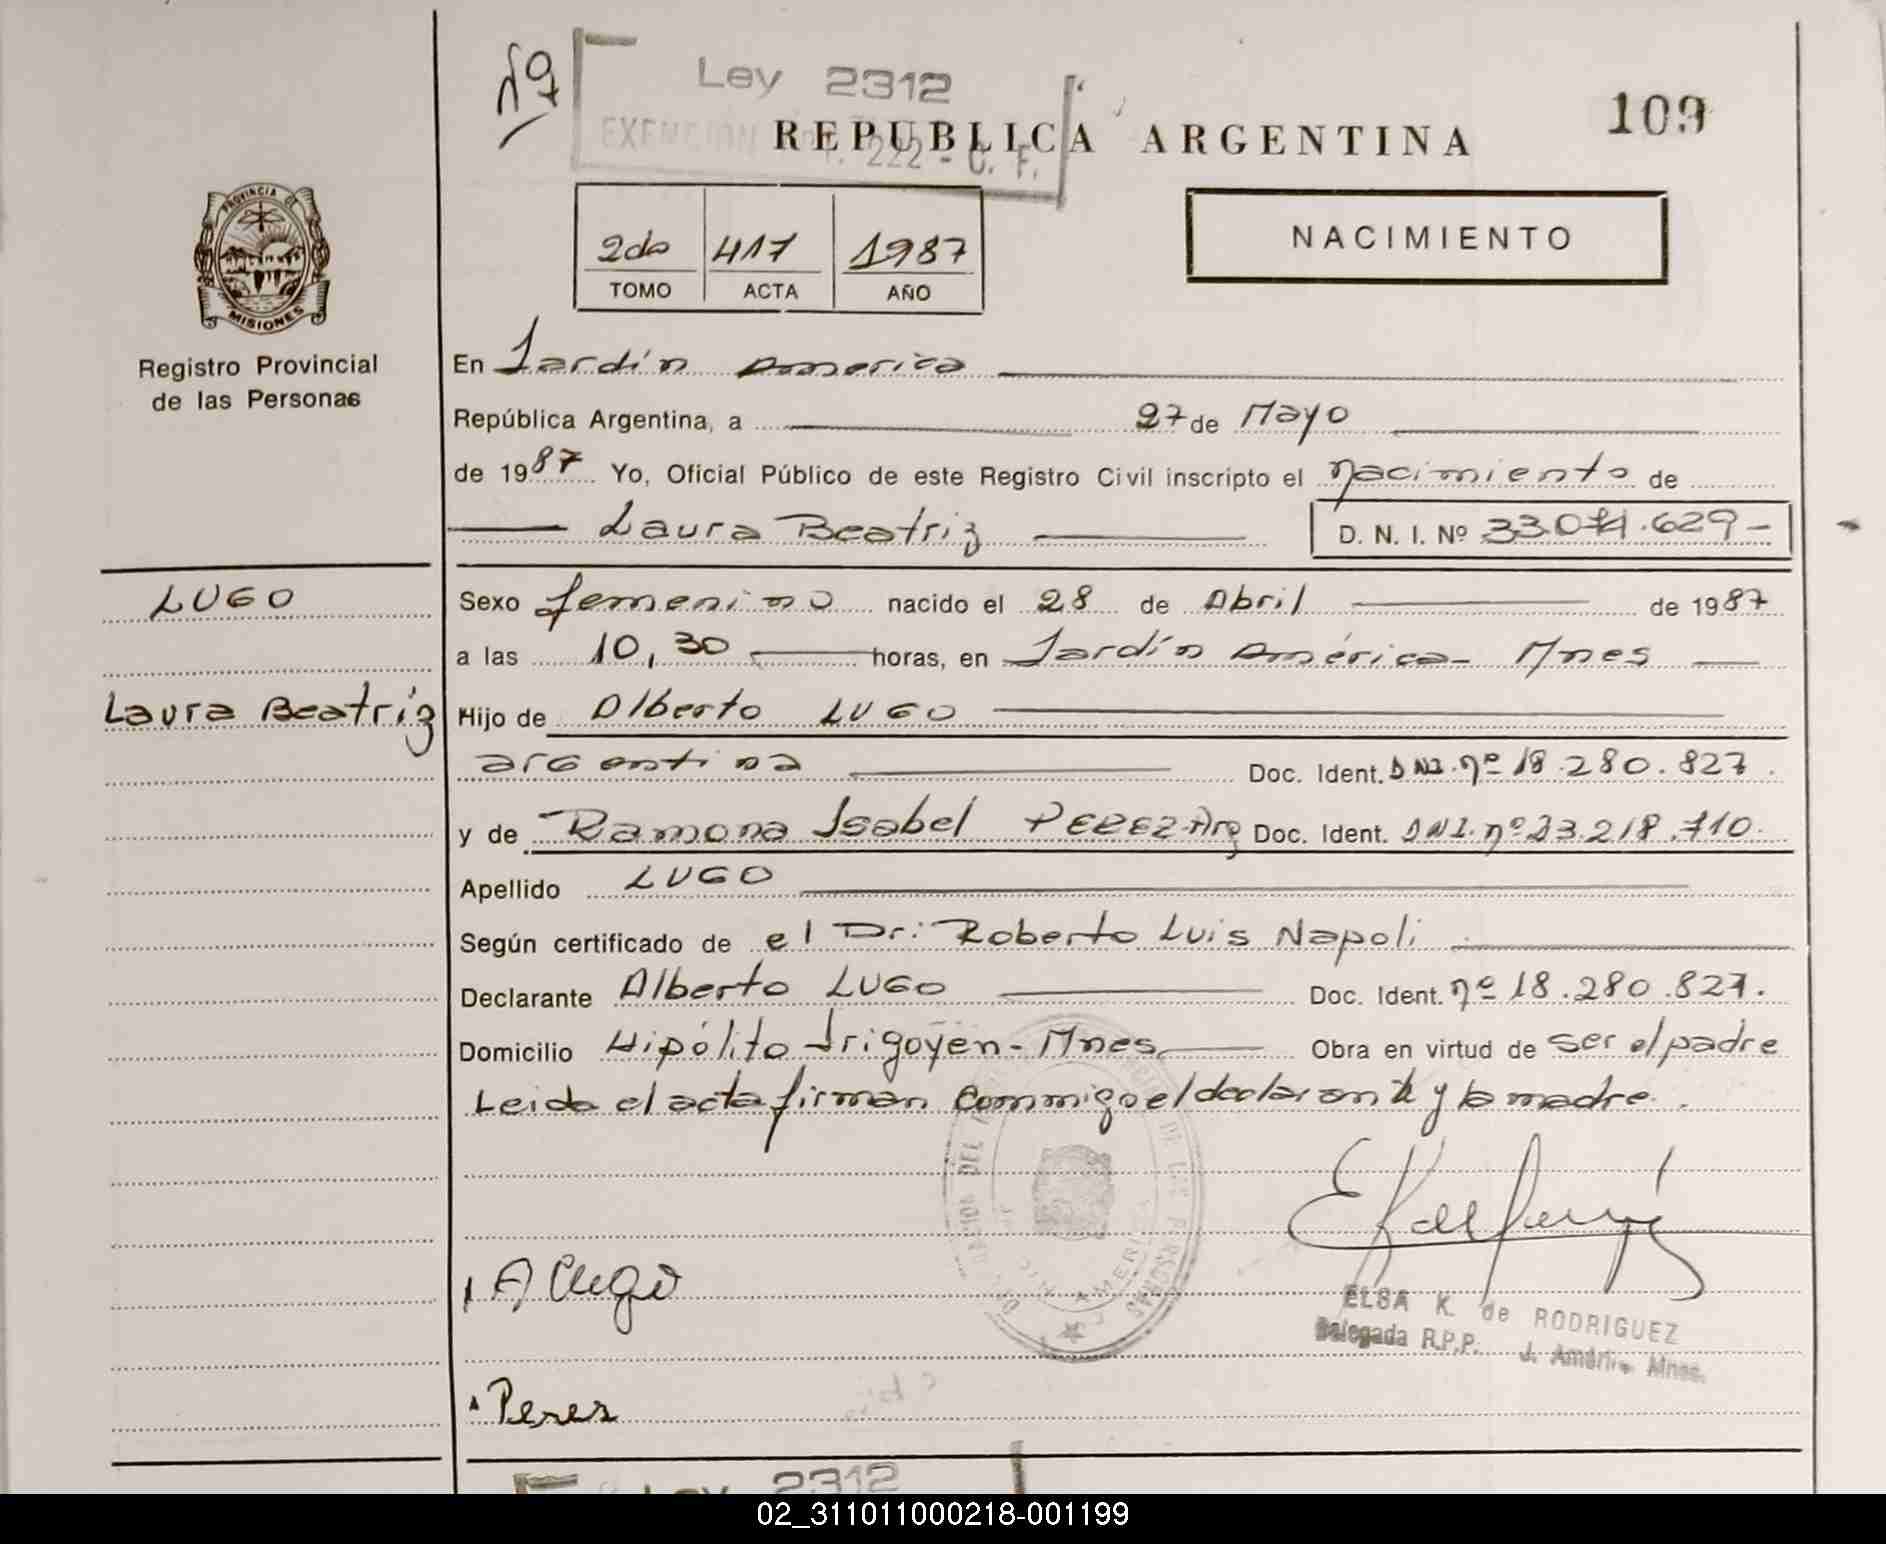 nº
Ley 2312
EXENCION Art. 222 - C. F.
REPUBLICA ARGENTINA
109
PROVINCIA DE
MISIONES
2do 417 1987
TOMO ACTA AÑO
NACIMIENTO
Registro Provincial
de las Personas
En Jardín America
República Argentina, a 27 de Mayo
de 1987 Yo, Oficial Público de este Registro Civil inscripto el nacimiento de
Laura Beatriz D. N. I. Nº 33.071.629-
LUGO
Laura Beatriz
Sexo femenino nacido el 28 de Abril de 1987
a las 10,30 horas, en Jardín América- Mnes
Hijo de Alberto LUGO
argentina Doc. Ident. DNI. nº 18.280.827.
y de Ramona Isabel PEREZ-Arg Doc. Ident. DNI. nº 23.218.710.
Apellido LUGO
Según certificado de el Dr: Roberto Luis Napoli
Declarante Alberto LUGO Doc. Ident. nº 18.280.827.
Domicilio Hipólito Irigoyen- Mnes Obra en virtud de ser el padre
Leida el acta firman commigo el declarante y la madre.
A Lugo
ELSA K. de RODRIGUEZ
Delegada R.P.P. J. América Mnes.
Perez
Ley 2312
02_311011000218-001199